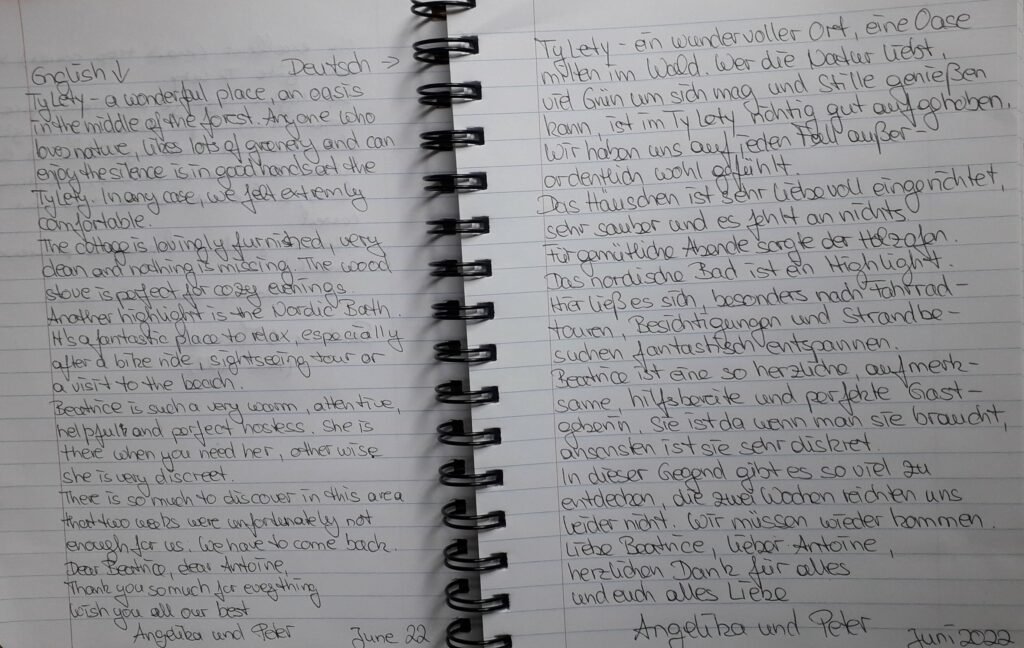 English ↓ Deutsch →
Ty Lety - a wonderful place, an oasis
in the middle of the forest. Anyone who
loves nature, likes lots of greenery and can
enjoy the silence is in good hands at the
Ty Lety. In any case, we felt extremly
comfortable.
The cottage is lovingly furnished, very
clean and nothing is missing. The wood
stove is perfect for cozy evenings.
Another highlight is the Nordic Bath.
It's a fantastic place to relax, especially
after a bike ride, sightseeing tour or
a visit to the beach.
Beatrice is such a very warm, attentive,
helpfull and perfect hostess. She is
there when you need her, otherwise
she is very discreet.
There is so much to discover in this area
that two weeks were unfortunately not
enough for us. We have to come back.
Dear Beatrice, dear Antoine,
Thank you so much for everything
Wish you all our best
Angelika und Peter June 22
Ty Lety - ein wundervoller Ort, eine Oase
mitten im Wald. Wer die Natur liebt,
viel Grün um sich mag und Stille genießen
kann, ist im Ty Lety richtig gut aufgehoben.
Wir haben uns auf jeden Fall außer-
ordentlich wohl gefühlt.
Das Häuschen ist sehr liebevoll eingerichtet,
sehr sauber und es fehlt an nichts.
Für gemütliche Abende sorgte der Holzofen.
Das nordische Bad ist ein Highlight.
Hier ließ es sich, besonders nach Fahrrad-
touren, Besichtigungen und Strandbe-
suchen fantastisch entspannen.
Beatrice ist eine so herzliche, aufmerk-
same, hilfsbereite und perfekte Gast-
geberin. Sie ist da wenn man sie braucht,
ansonsten ist sie sehr diskret.
In dieser Gegend gibt es so viel zu
entdecken, die zwei Wochen reichten uns
leider nicht. Wir müssen wieder kommen.
Liebe Beatrice, lieber Antoine,
herzlichen Dank für alles
und euch alles Liebe
Angelika und Peter Juni 2022